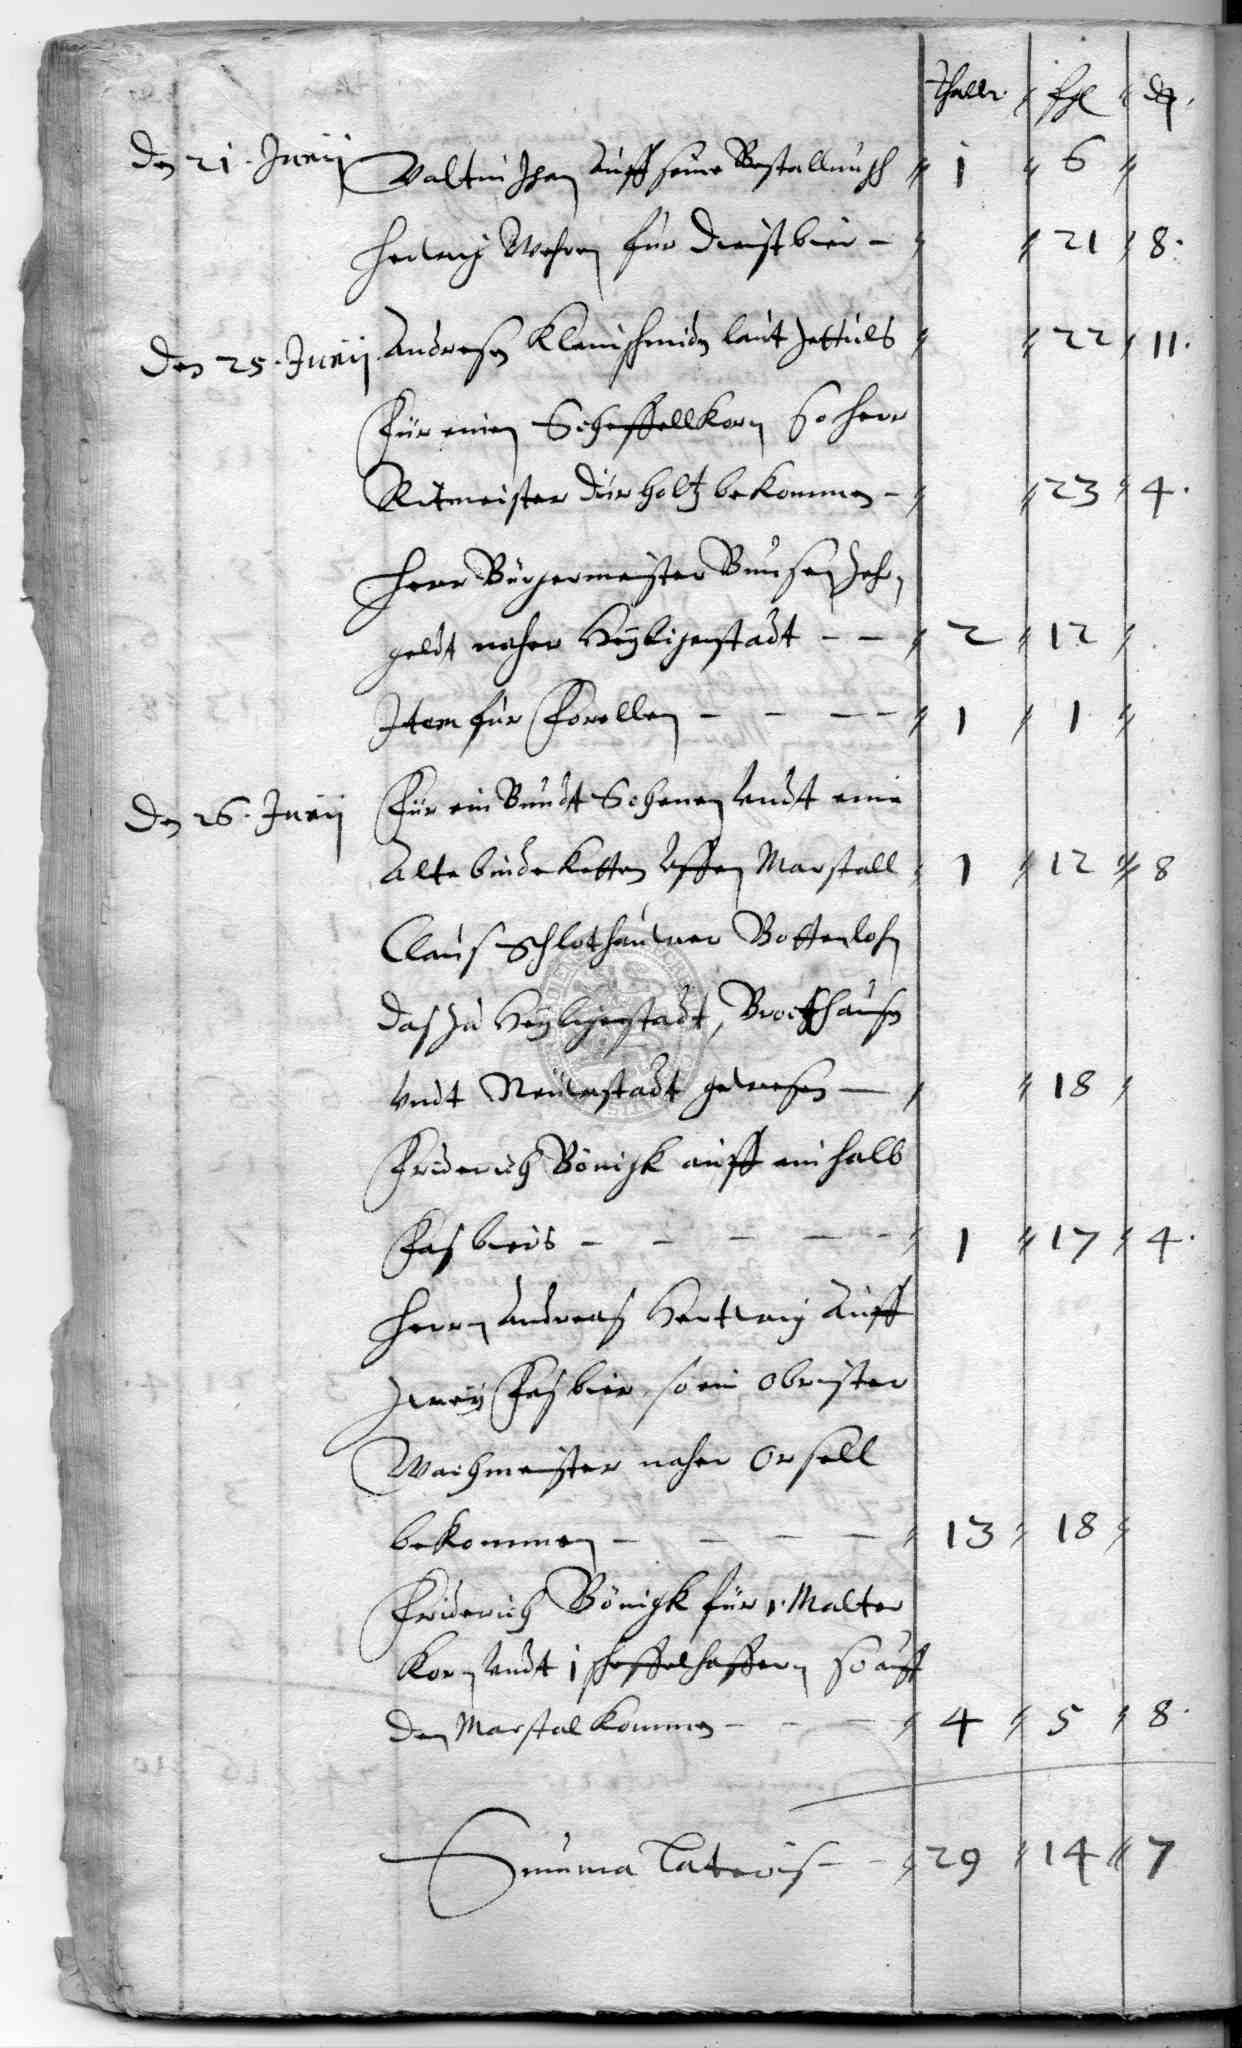 thallr. ggl d.
den 21. Junij Valtin auff seine Bestallungh 1 6
Herwig Wehren für dinstbier - 21 8.
den 25. Junij Andresen Kleinschmidn laut Zettuls 22 11.
Für einen Scheffell Korn so Herr
Ritmeister Dürholtz bekommen - 23 4.
Herr Bürgermeister Bunsen Zehr
geldt naher Heyligenstadt - - 2 12
Item für Forellen - - - - 1 1
den 26. Junij Für ein Bundt Schenen undt eine
alte binde Ketten uffen Marstall 1 12 8
Claus Schlothauwer Bottenlohn
das zu Heyligenstadt, Brockhausen
undt Neuwstadt gewesen - 18
Friderich Bönigk auff ein halb
Fas biers - - - - - 1 17 4.
Herrn Andreas Hertwig auff
zwey Fas bier, so ein Obrister
Wachmeister naher Orsell
bekommen - - - - 13 18
Friderich Bönigk für 1. Malter
Korn undt 1 scheffel haffern so auff
den Marstal kommen - - - 4 5 8.
Summa Lateris - - 29 14 7